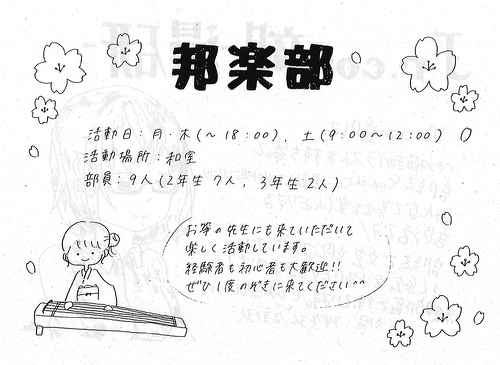 邦楽部
活動日：月・木（～18：00）、土（9：00～12：00）
活動場所：和室
部員：9人（2年生7人、3年生2人）
お箏の先生にも来ていただいて
楽しく活動しています。
経験者も初心者も大歓迎!!
ぜひ1度のぞきに来てください^^